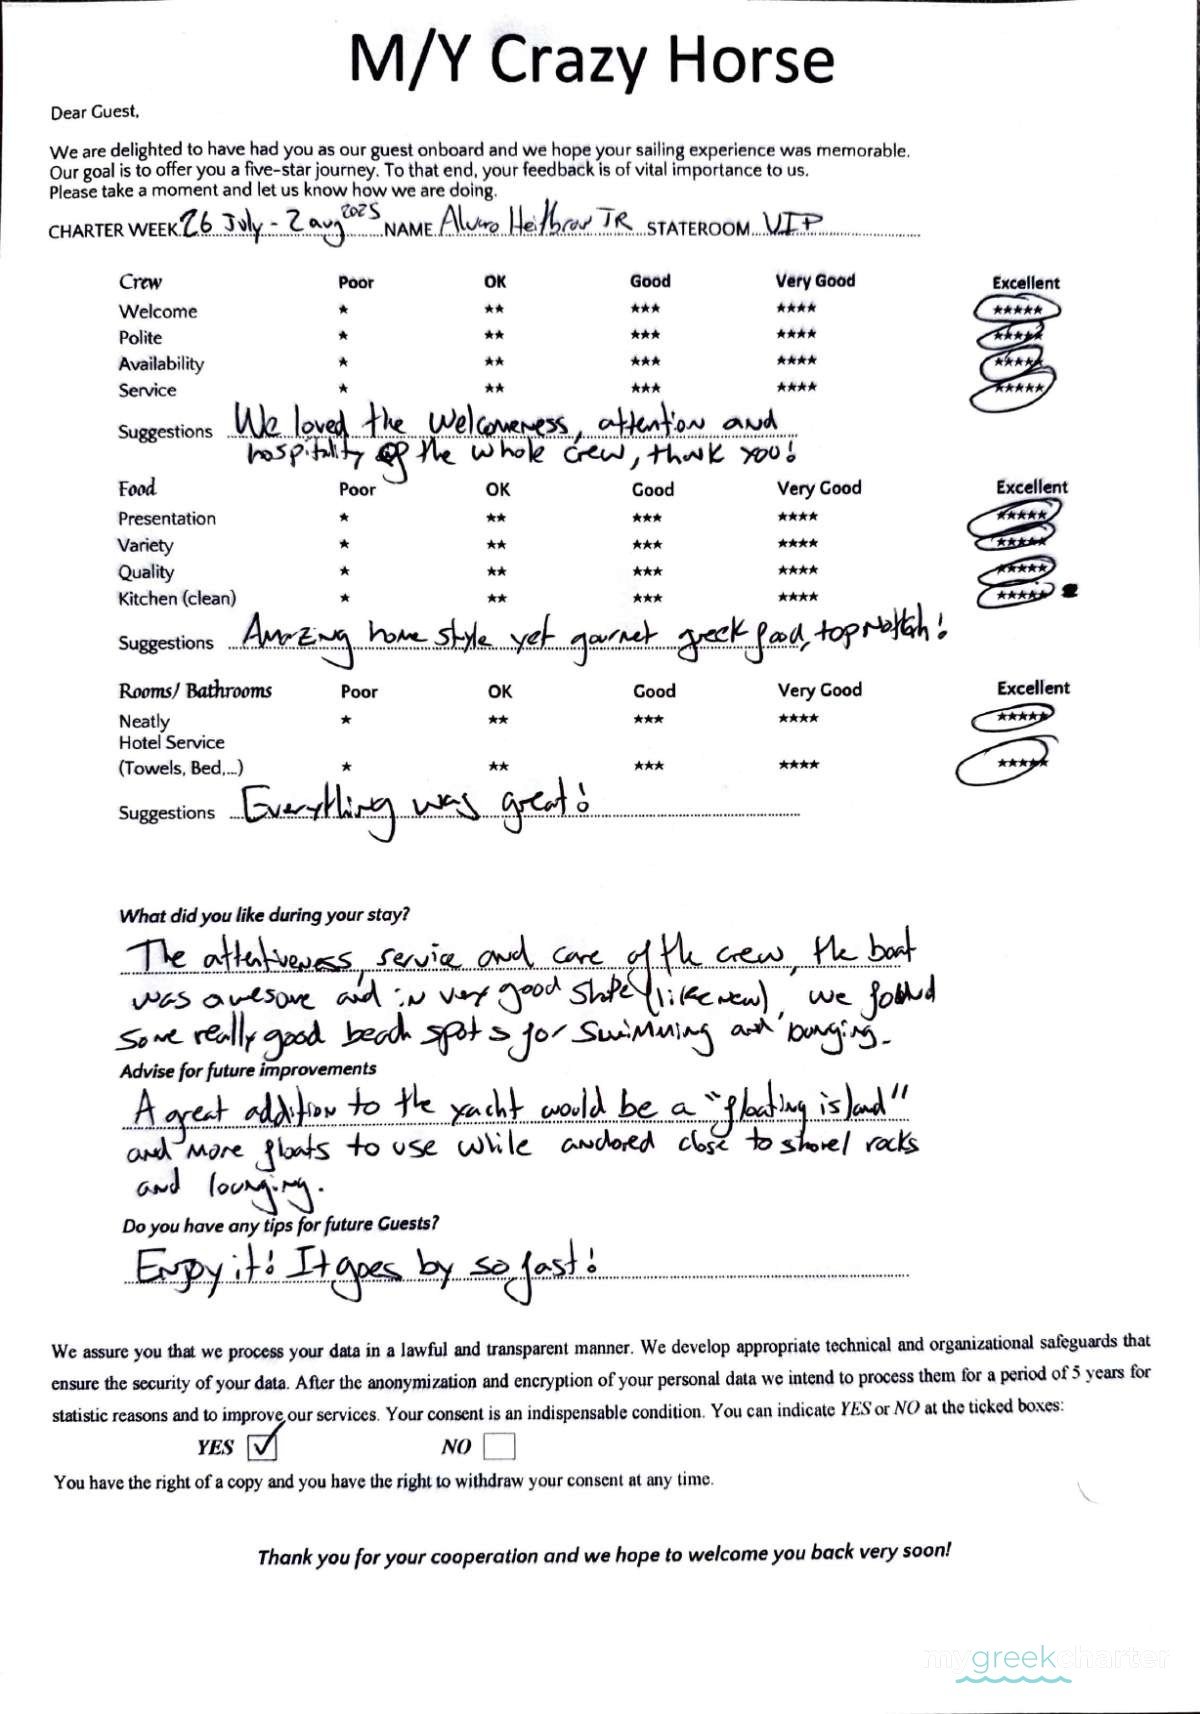 M/Y Crazy Horse
Dear Guest,
We are delighted to have had you as our guest onboard and we hope your sailing experience was memorable.
Our goal is to offer you a five-star journey. To that end, your feedback is of vital importance to us.
Please take a moment and let us know how we are doing.
CHARTER WEEK 26 July - 2 aug 2025 NAME Alvaro JR STATEROOM VIP
Crew Poor OK Good Very Good Excellent
Welcome ★ ★★ ★★★ ★★★★ ★★★★★
Polite ★ ★★ ★★★ ★★★★ ★★★★★
Availability ★ ★★ ★★★ ★★★★ ★★★★★
Service ★ ★★ ★★★ ★★★★ ★★★★★
Suggestions We loved the welcomeness, attention and
hospitality of the whole crew, thank you!
Food Poor OK Good Very Good Excellent
Presentation ★ ★★ ★★★ ★★★★ ★★★★★
Variety ★ ★★ ★★★ ★★★★ ★★★★★
Quality ★ ★★ ★★★ ★★★★ ★★★★★
Kitchen (clean) ★ ★★ ★★★ ★★★★ ★★★★★
Suggestions Amazing home style yet gourmet greek food, top notch!
Rooms/ Bathrooms Poor OK Good Very Good Excellent
Neatly ★ ★★ ★★★ ★★★★ ★★★★★
Hotel Service
(Towels, Bed,...) ★ ★★ ★★★ ★★★★ ★★★★★
Suggestions Everything was great!
What did you like during your stay?
The attentiveness, service and care of the crew, the boat
was awesome and in very good shape (like new), we found
some really good beach spots for swimming and lounging.
Advise for future improvements
A great addition to the yacht would be a "floating island"
and more floats to use while anchored close to shore/ rocks
and lounging.
Do you have any tips for future Guests?
Enjoy it! It goes by so fast!
We assure you that we process your data in a lawful and transparent manner. We develop appropriate technical and organizational safeguards that
ensure the security of your data. After the anonymization and encryption of your personal data we intend to process them for a period of 5 years for
statistic reasons and to improve our services. Your consent is an indispensable condition. You can indicate YES or NO at the ticked boxes:
YES ☑ NO ☐
You have the right of a copy and you have the right to withdraw your consent at any time.
Thank you for your cooperation and we hope to welcome you back very soon!
mygreekcharter